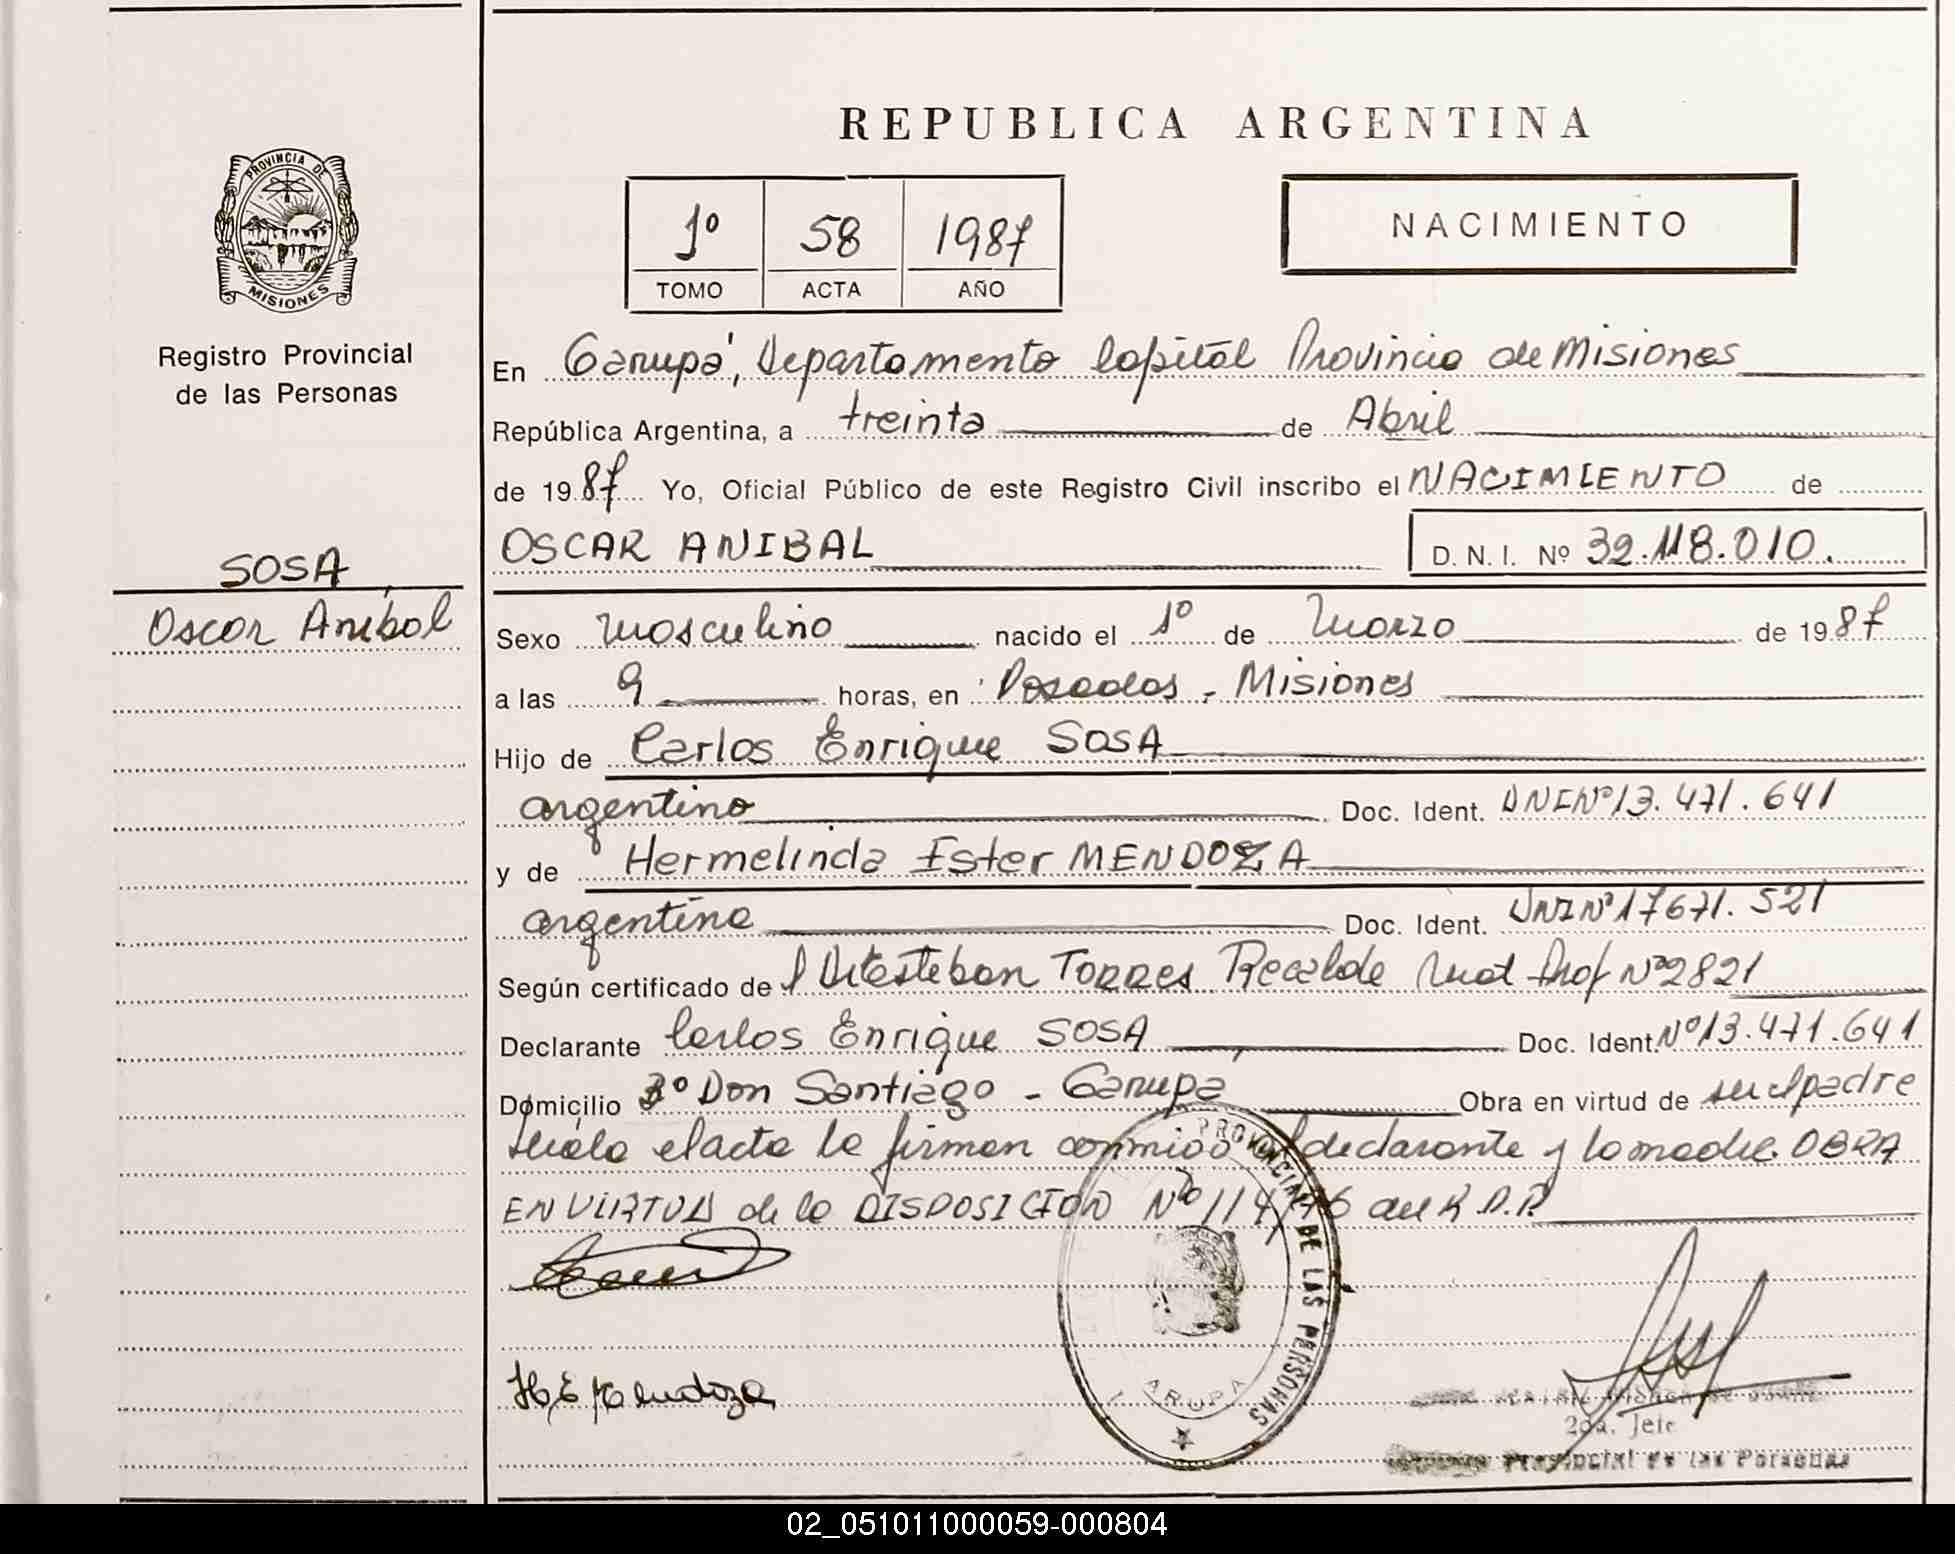 REPUBLICA ARGENTINA
PROVINCIA DE
MISIONES
Registro Provincial
de las Personas
1º 58 1987
TOMO ACTA AÑO
NACIMIENTO
En Garupá, Departamento Capital Provincia de Misiones
República Argentina, a treinta de Abril
de 1987 Yo, Oficial Público de este Registro Civil inscribo el NACIMIENTO de
OSCAR ANIBAL D.N.I. Nº 32.118.010.
SOSA
Oscar Anibal
Sexo masculino nacido el 1º de Marzo de 1987
a las 9 horas, en Posadas - Misiones
Hijo de Carlos Enrique SOSA
argentino Doc. Ident. DNI Nº 13.471.641
y de Hermelinda Ester MENDOZA
argentina Doc. Ident. DNI Nº 17671.521
Según certificado de Esteban TORRES Recalde Mat Prof Nº 2821
Declarante Carlos Enrique SOSA Doc. Ident. Nº 13.471.641
Domicilio Bº Don Santiago - Garupá Obra en virtud de ser el padre
Leída el acta la firman conmigo el declarante y la madre. OBRA
EN VIRTUD de la DISPOSICION Nº 114/76 del R.P.P.
PROVINCIAL DE LAS PERSONAS
GARUPA
H E Mendoza
2da. Jefe
Provincial de las Personas
02_051011000059-000804